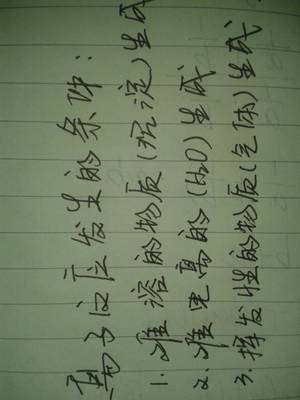 离子反应发生的条件:
1. 难溶的物质(沉淀)生成
2. 难电离的(H2O)生成
3. 挥发性的物质(气体)生成